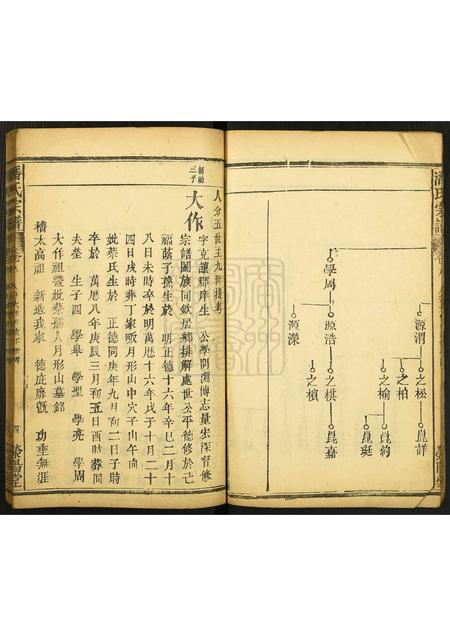 源渭
之極
崑詳
之柏
之榆
崑約
崑珽
學周
源浩
之棋
崑嘉
源濚
之楨
人分五世主九世提考
大作
字克讓郡庠生 公學問淵博志量宏深督修
宗譜闔族同欽居鄉排解處世公平德修於己
福蔭子孫生於 明正德十六年辛巳二月十
八日未時卒於明萬曆十六年戊子十月二十
四日戌時葬丁家畈月形山中穴子山午向
妣蔡氏生於 正德同庚年九月初二日子時
卒於 萬曆八年庚辰三月初五日酉時葬同
夫塋 生子四 學舉 學聖 學堯 學周
大作祖暨妣蔡孺人月形山墓銘
稽太高祖 新造我家 德庇靡旣 功垂無涯
潘氏宗譜
四
滎陽堂